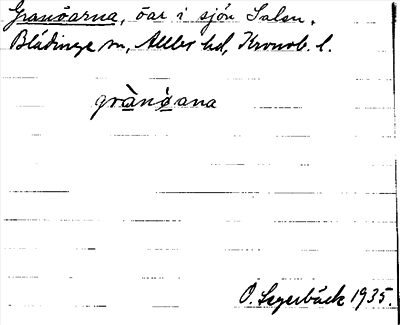 Granöarna, öar i sjön Salen,
Blädinge sn, Allbo hd, Kronob. l.
grànø̀ana
O. Segerbäck 1935.